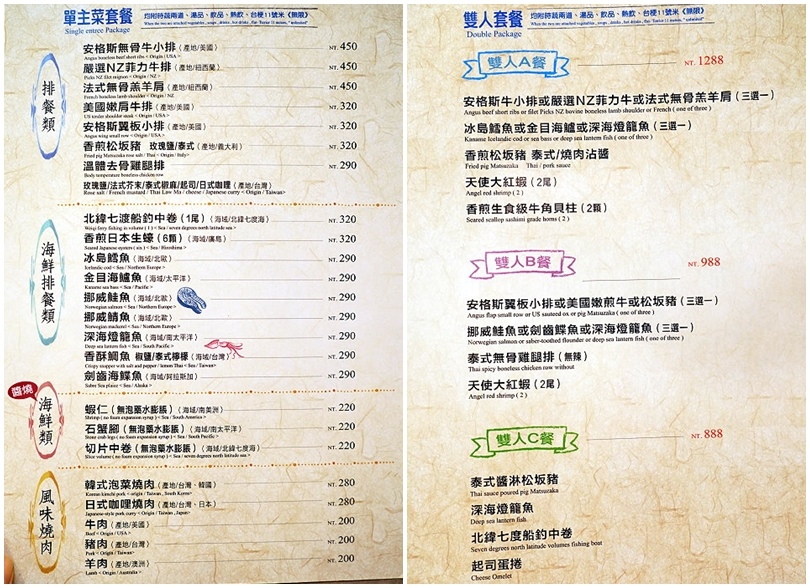 單主菜套餐
Single entree Package
均附時蔬兩道、湯品、飲品、熱飲、台梗11號米《無限》
排餐類
安格斯無骨牛小排(產地/美國) NT. 450
Angus boneless beef short ribs < Origin / USA >
嚴選NZ菲力牛排(產地/紐西蘭) NT. 450
Picks NZ filet mignon < Origin / NZ >
法式無骨羔羊肩(產地/紐西蘭) NT. 450
French boneless lamb shoulder < Origin / NZ >
美國嫩肩牛排(產地/美國) NT. 320
US tender shoulder steak < Origin / USA >
安格斯翼板小排(產地/美國) NT. 320
Angus wing small row < Origin / USA >
香煎松坂豬 玫瑰鹽/泰式(產地/義大利) NT. 320
Fried pig Matsuzaka rose salt / Thai < Origin / Italy >
溫體去骨雞腿排 NT. 290
Body temperature boneless chicken row
玫瑰鹽/法式芥末/泰式椒麻/起司/日式咖哩(產地/台灣)
Rose salt / French mustard / Thai Law Ma / cheese / Japanese curry < Origin / Taiwan >
海鮮排餐類
北緯七渡船釣中卷(1尾)(海域/北緯七度海) NT. 320
香煎日本生蠔(6顆)(海域/廣島) NT. 320
Seared Japanese oysters ( six ) < Sea / Hiroshima >
冰島鱈魚(海域/北歐) NT. 290
Icelandic cod < Sea / Northern Europe >
金目海鱸魚(海域/太平洋) NT. 290
Kaname sea bass < Sea / Pacific >
挪威鮭魚(海域/北歐) NT. 290
Norwegian salmon < Sea / Northern Europe >
挪威鯖魚(海域/北歐) NT. 290
Norwegian mackerel < Sea / Northern Europe >
深海燈籠魚(海域/南太平洋) NT. 290
Deep sea lantern fish < Sea / South Pacific >
香酥鯛魚 椒鹽/泰式檸檬(海域/台灣) NT. 290
Crispy snapper with salt and pepper / lemon Thai < Sea / Taiwan >
劍齒海鰈魚(海域/阿拉斯加) NT. 290
Saber Sea plaice < Sea / Alaska >
醬燒
海鮮類
蝦仁(無泡藥水膨脹)(海域/南美洲) NT. 220
Shrimp ( no foam expansion syrup ) < Sea / South America >
石蟹腳(無泡藥水膨脹)(海域/南太平洋) NT. 220
Stone crab legs ( no foam expansion syrup ) < Sea / South Pacific >
切片中卷(無泡藥水膨脹)(海域/北緯七度海) NT. 220
Slice volume ( no foam expansion syrup ) < Sea / seven degrees north latitude sea >
風味燒肉
韓式泡菜燒肉(產地/台灣、韓國) NT. 280
Korean kimchi pork < origin / Taiwan , South Korea >
日式咖哩燒肉(產地/台灣、日本) NT. 280
Japanese-style pork curry < Origin / Taiwan , Japan >
牛肉(產地/美國) NT. 200
Beef < Origin / USA >
豬肉(產地/台灣) NT. 200
Pork < Origin / Taiwan >
羊肉(產地/澳洲) NT. 200
Lamb < Origin / Australia >
雙人套餐
Double Package
均附時蔬兩道、湯品、飲品、熱飲、台梗11號米《無限》
雙人A餐 NT. 1288
安格斯牛小排或嚴選NZ菲力牛或法式無骨羔羊肩(三選一)
Angus beef short ribs or filet Picks NZ bovine boneless lamb shoulder or French ( one of three )
冰島鱈魚或金目海鱸或深海燈籠魚(三選一)
Kaname Icelandic cod or sea bass or deep sea lantern fish ( one of three )
香煎松坂豬 泰式/燒肉沾醬
Fried pig Matsuzaka Thai / pork sauce
天使大紅蝦(2尾)
Angel red shrimp ( 2 )
香煎生食級牛角貝柱(2顆)
Seared scallop sashimi grade horns ( 2 )
雙人B餐 NT. 988
安格斯翼板小排或美國嫩煎牛或松坂豬(三選一)
Angus flap small row or US sauteed ox or pig Matsuzaka ( one of three )
挪威鮭魚或劍齒鰈魚或深海燈籠魚(三選一)
Norwegian salmon or saber-toothed flounder or deep sea lantern fish ( one of three )
泰式無骨雞腿排(無辣)
Thai spicy boneless chicken row without
天使大紅蝦(2尾)
Angel red shrimp ( 2 )
雙人C餐 NT. 888
泰式醬淋松坂豬
Thai sauce poured pig Matsuzaka
深海燈籠魚
Deep sea lantern fish
北緯七度船釣中卷
Seven degrees north latitude volumes fishing boat
起司蛋捲
Cheese Omelet